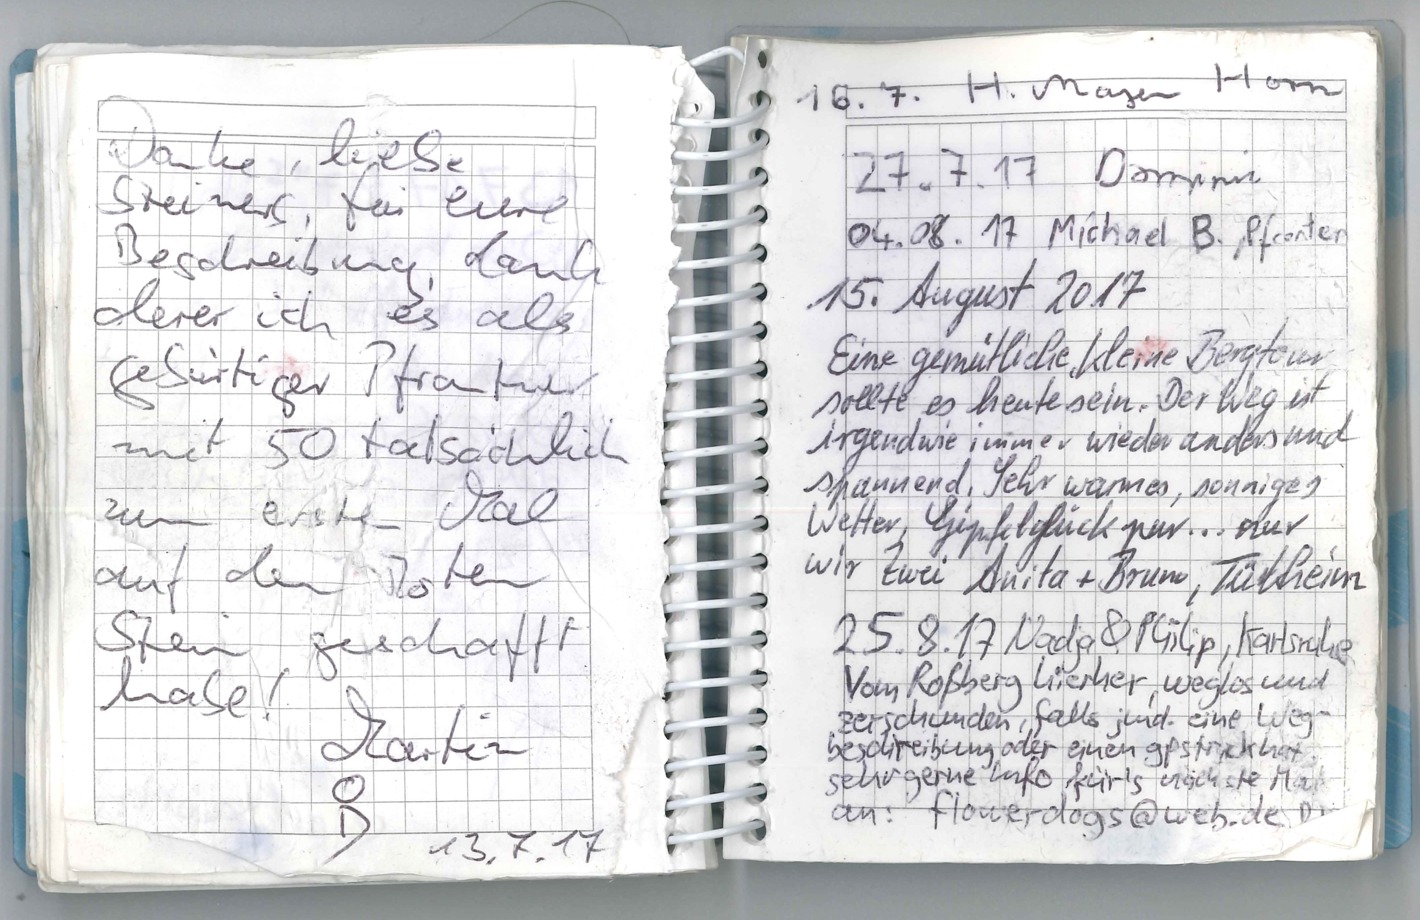 Danke, liebe
Steiners, für eure
Beschreibung, dank
derer ich es als
gebürtiger Pfrontner
mit 50 tatsächlich
zum ersten Mal
auf den Roten
Stein geschafft
habe!
Martin
13.7.17
16.7. H. Mayer Horn
27.7.17
04.08.17 Michael B., Pfronten
15. August 2017
Eine gemütliche, kleine Bergtour
sollte es heute sein. Der Weg ist
irgendwie immer wieder anders und
spannend. Sehr warmes, sonniges
Wetter, Gipfelglück pur... nur
wir zwei Anita + Bruno,
25.8.17 Nadja & Philip, Karlsruhe
Vom Roßberg hierher, weglos und
zerschunden, falls jmd. eine Weg-
beschreibung oder einen gpstrick hat,
sehr gerne Info für's nächste Mal
an: flowerdogs@web.de